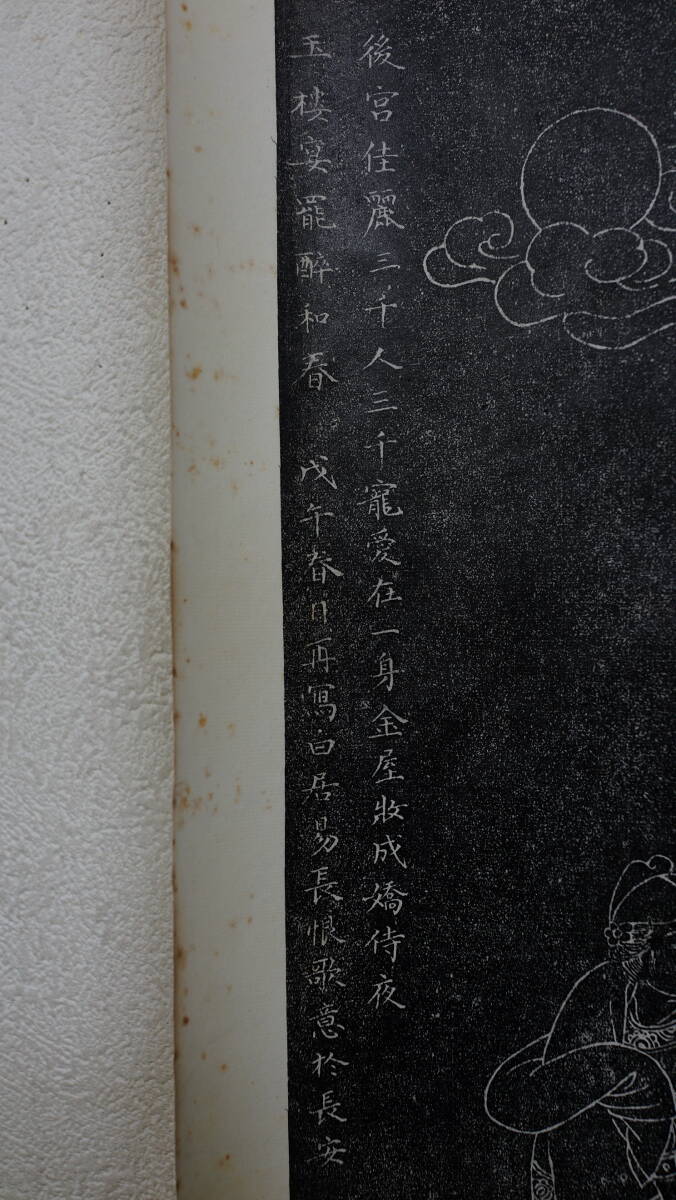 後宮佳麗三千人三千寵愛在一身金屋妝成嬌侍夜
玉樓宴罷醉和春 戊午春日再寫白居易長恨歌意於長安